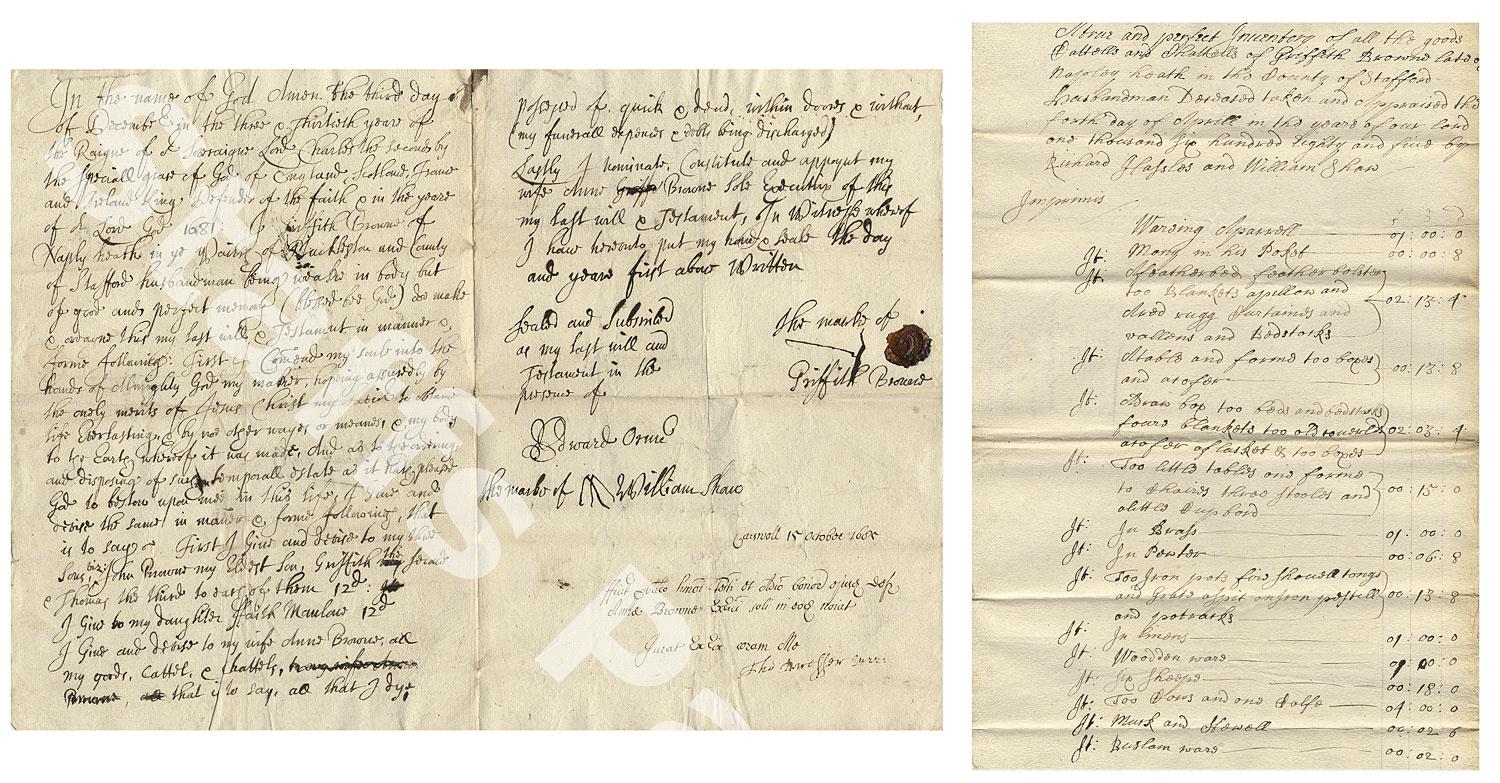 In the name of God Amen. the third day
of December in the three & thirtieth yeare of
the Raigne of Soveraigne Lord Charles the second by
the speciall grace of God of England, Scotland, France
and Ireland King, Defender of the faith & in the yeare
of Lord God 1681: Griffith Browne of
heath in ye Parish of Muckleston and County
of Stafford husbandman being weake in body but
of good and perfect memory (blessed bee God) doe make
& ordayne this my last will & Testament in manner &
forme following: First I Comend my soule into the
hands of Almighty God my maker, hopeing assuredly by
the onely merits of Jesus Christ my to obtaine
life Everlasting, & by no other wayes or meanes, & my body
to the Earth whereof it was made, And as to the ordering
and disposing of such temporall estate as it hath pleased
God to bestow upon mee in this life, I Give and
devise the same in maner & forme following, that
is to say First I Give and devise to my three
Sons, viz: John Browne my Eldest Son, Griffith the second
& Thomas the third to each of them 12d:
I Give to my daughter Faith 12d
I Give and devise to my wife Anne Browne, all
my goods, Cattel, & chattels,
that is to say, all that I dye
possesed of quick & dead, within doores & without,
(my funerall expences & debts being discharged)
Lastly I nominate, Constitute and appoynt my
wife Anne Browne Sole Executrix of this
my last will & Testament, In Witnesse whereof
I have hereunto put my hand & seale the day
and yeare first above Written
Sealed and Subscribed
as my last will and
Testament in the
presence of
The marke of
Griffith Browne
Edward Orme
the marke of William Shaw
15 October 1685
Anne Browne
Jurat
A true and perfect Inventory of all the goods
Cattells and Chattells of Griffith Browne late of
heath in the County of Stafford
Husbandman Deceased taken and Appraised the
forth day of Aprill in the yeare of our lord
one thousand six hundred Eighty and five by
Richard and William Shaw
Imprimis
Waring Aparrell 01: 00: 0
It: Mony in his Poket 00: 00: 8
It: A featherbed featherbolster
too Blankets apillow and
Ared rugg Curtaines and
vallens and Bedstocks 02: 13: 4
It: Atable and forme too boxes
and acofer 00: 13: 8
It: Adraw box too beds and bedstocks
foure blankets too old towells
acofer & too boxes 02: 03: 4
It: Too little tables one forme
to Chaires three stooles and
alittle Cupbord 00: 15: 0
It: In Brass 01: 00: 0
It: In Pewter 00: 06: 8
It: Too Iron pots fire shovell tongs
and Grate aspit anIron pestell
and potracks 00: 13: 8
It: In linens 01: 00: 0
It: Woodden ware
It: Six Sheepe 00: 18: 0
It: Too Cows and one Calfe 04: 00: 0
It: Muck and 00: 02: 6
It: Huslam ware 00: 02: 0